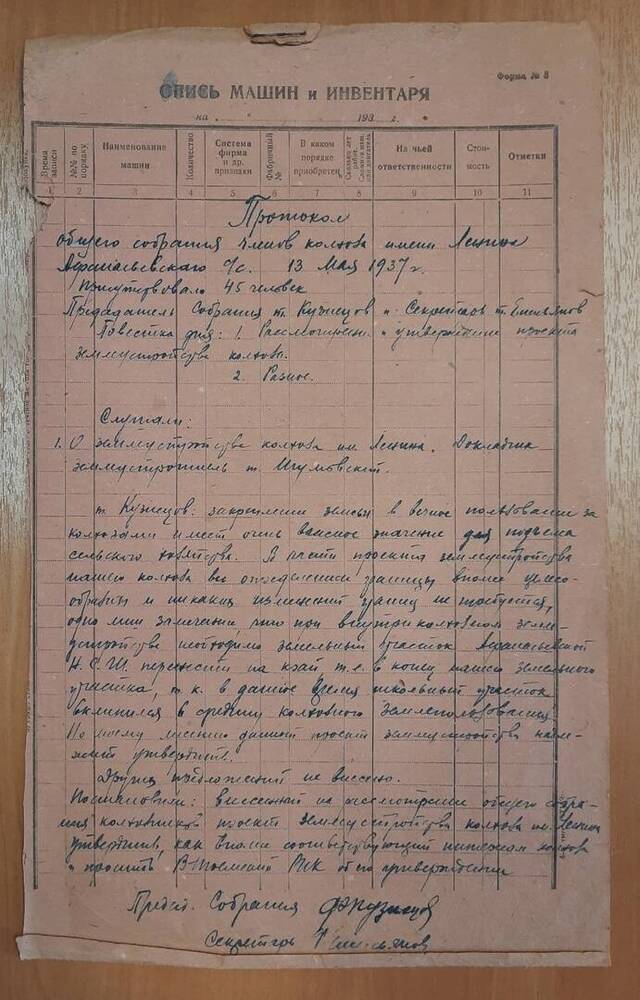 Форма № 8
ОПИСЬ МАШИН и ИНВЕНТАРЯ
на 193 г.
Время записи №№ по порядку Наименование машин Количество Система фирма и др. признаки Фабричный № В каком порядке приобретен Сколько лет работ. На чьей ответственности Стоимость Отметки
1 2 3 4 5 6 7 8 9 10 11
Протокол
общего собрания членов колхоза имени Ленина
Афанасьевского с/с. 13 Мая 1937 г.
Присутствовало 45 человек
Председатель Собрания т. Кузнецов и Секретарь т. Емельянов
Повестка дня: 1. Рассмотрение и утверждение проекта
землеустройства колхоза.
2. Разное.
Слушали:
1. О землеустройстве колхоза им. Ленина. Докладчик
землеустроитель т. Игумовский.
т. Кузнецов: закрепление земли в вечное пользование за
колхозами имеет очень важное значение для подъема
сельского хозяйства. В части проекта землеустройства
нашего колхоза все определенные границы вполне целесо-
образны и никаких изменений границ не требуется,
одно лишь замечание, что при внутриколхозном земле-
устройстве необходимо земельный участок Афанасьевской
Н.С.Ш. перенести на край т.е. в конец нашего земельного
участка, т.к. в данное время школьный участок
вклинился в средину колхозного землепользования
По моему мнению данный проект землеустройства
утвердить.
Других предложений не внесено.
Постановили: внесенный на рассмотрение общего собра-
ния колхозников проект землеустройства колхоза им. Ленина
утвердить, как вполне соответствующий интересам колхоза
и просить РИК об его утверждении
Предс. Собрания Кузнецов
Секретарь Емельянов